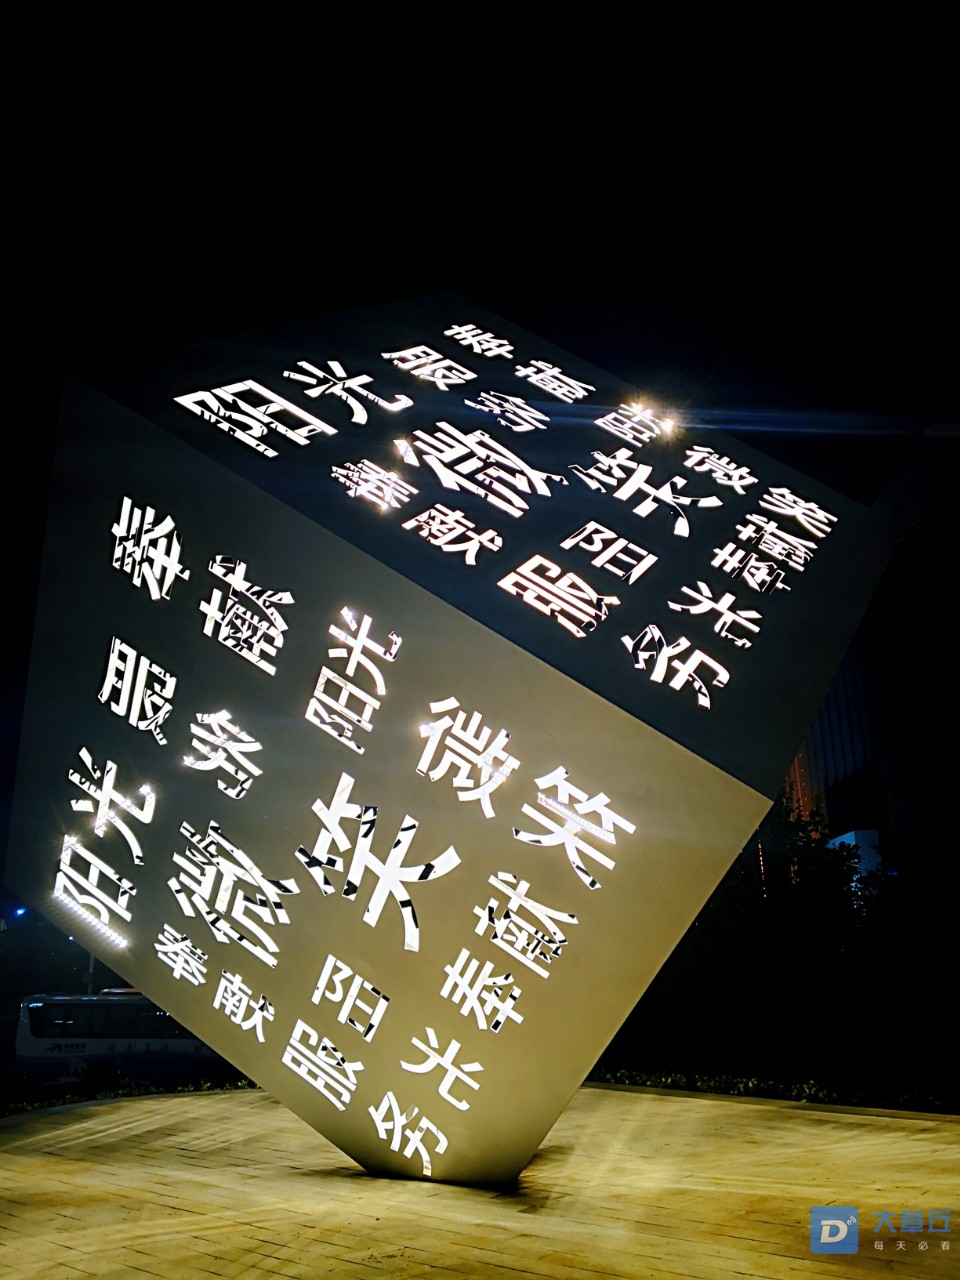 奉献
服务
阳光
微笑
阳光
微笑
奉献
奉献
阳光
服务
奉献
服务
阳光
阳光
微笑
微笑
奉献
奉献
阳光
服务
大章丘
每天必看